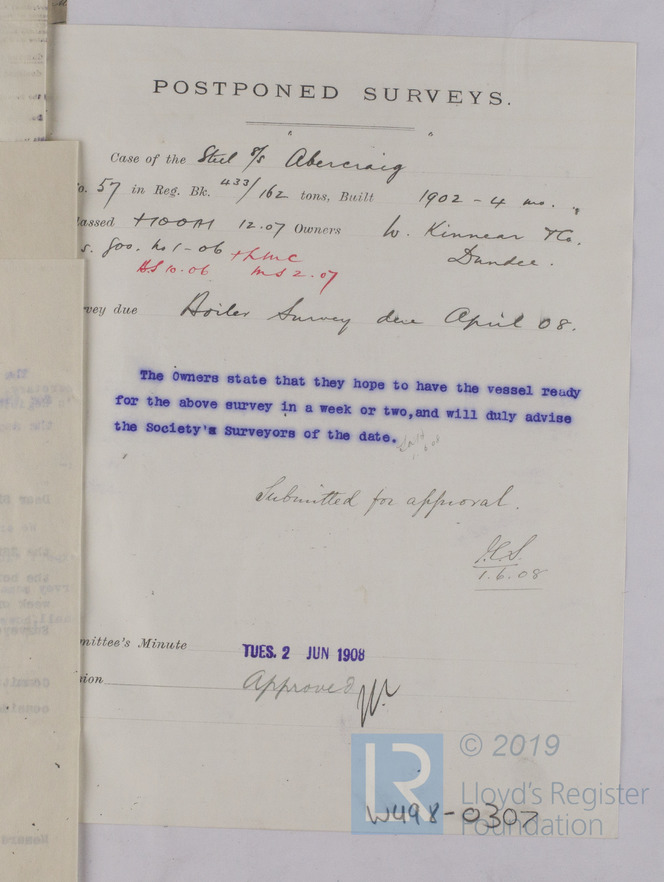 POSTPONED SURVEYS.
Case of the Steel S/S Abercraig
o. 57 in Reg. Bk. 433/162 tons, Built 1902 - 4 mo.
lassed +100A1 12.07 Owners W. Kinnear & Co.
s. Goo. No 1-06 +LMC Dundee.
BS 10.06 MS 2.07
vey due Boiler Survey due April 08.
The Owners state that they hope to have the vessel ready
for the above survey in a week or two, and will duly advise
the Society's Surveyors of the date.
Submitted for approval.
1.6.08
mittee's Minute TUES. 2 JUN 1908
sion Approved
LR © 2019
Lloyd's Register
Foundation
W498-0307